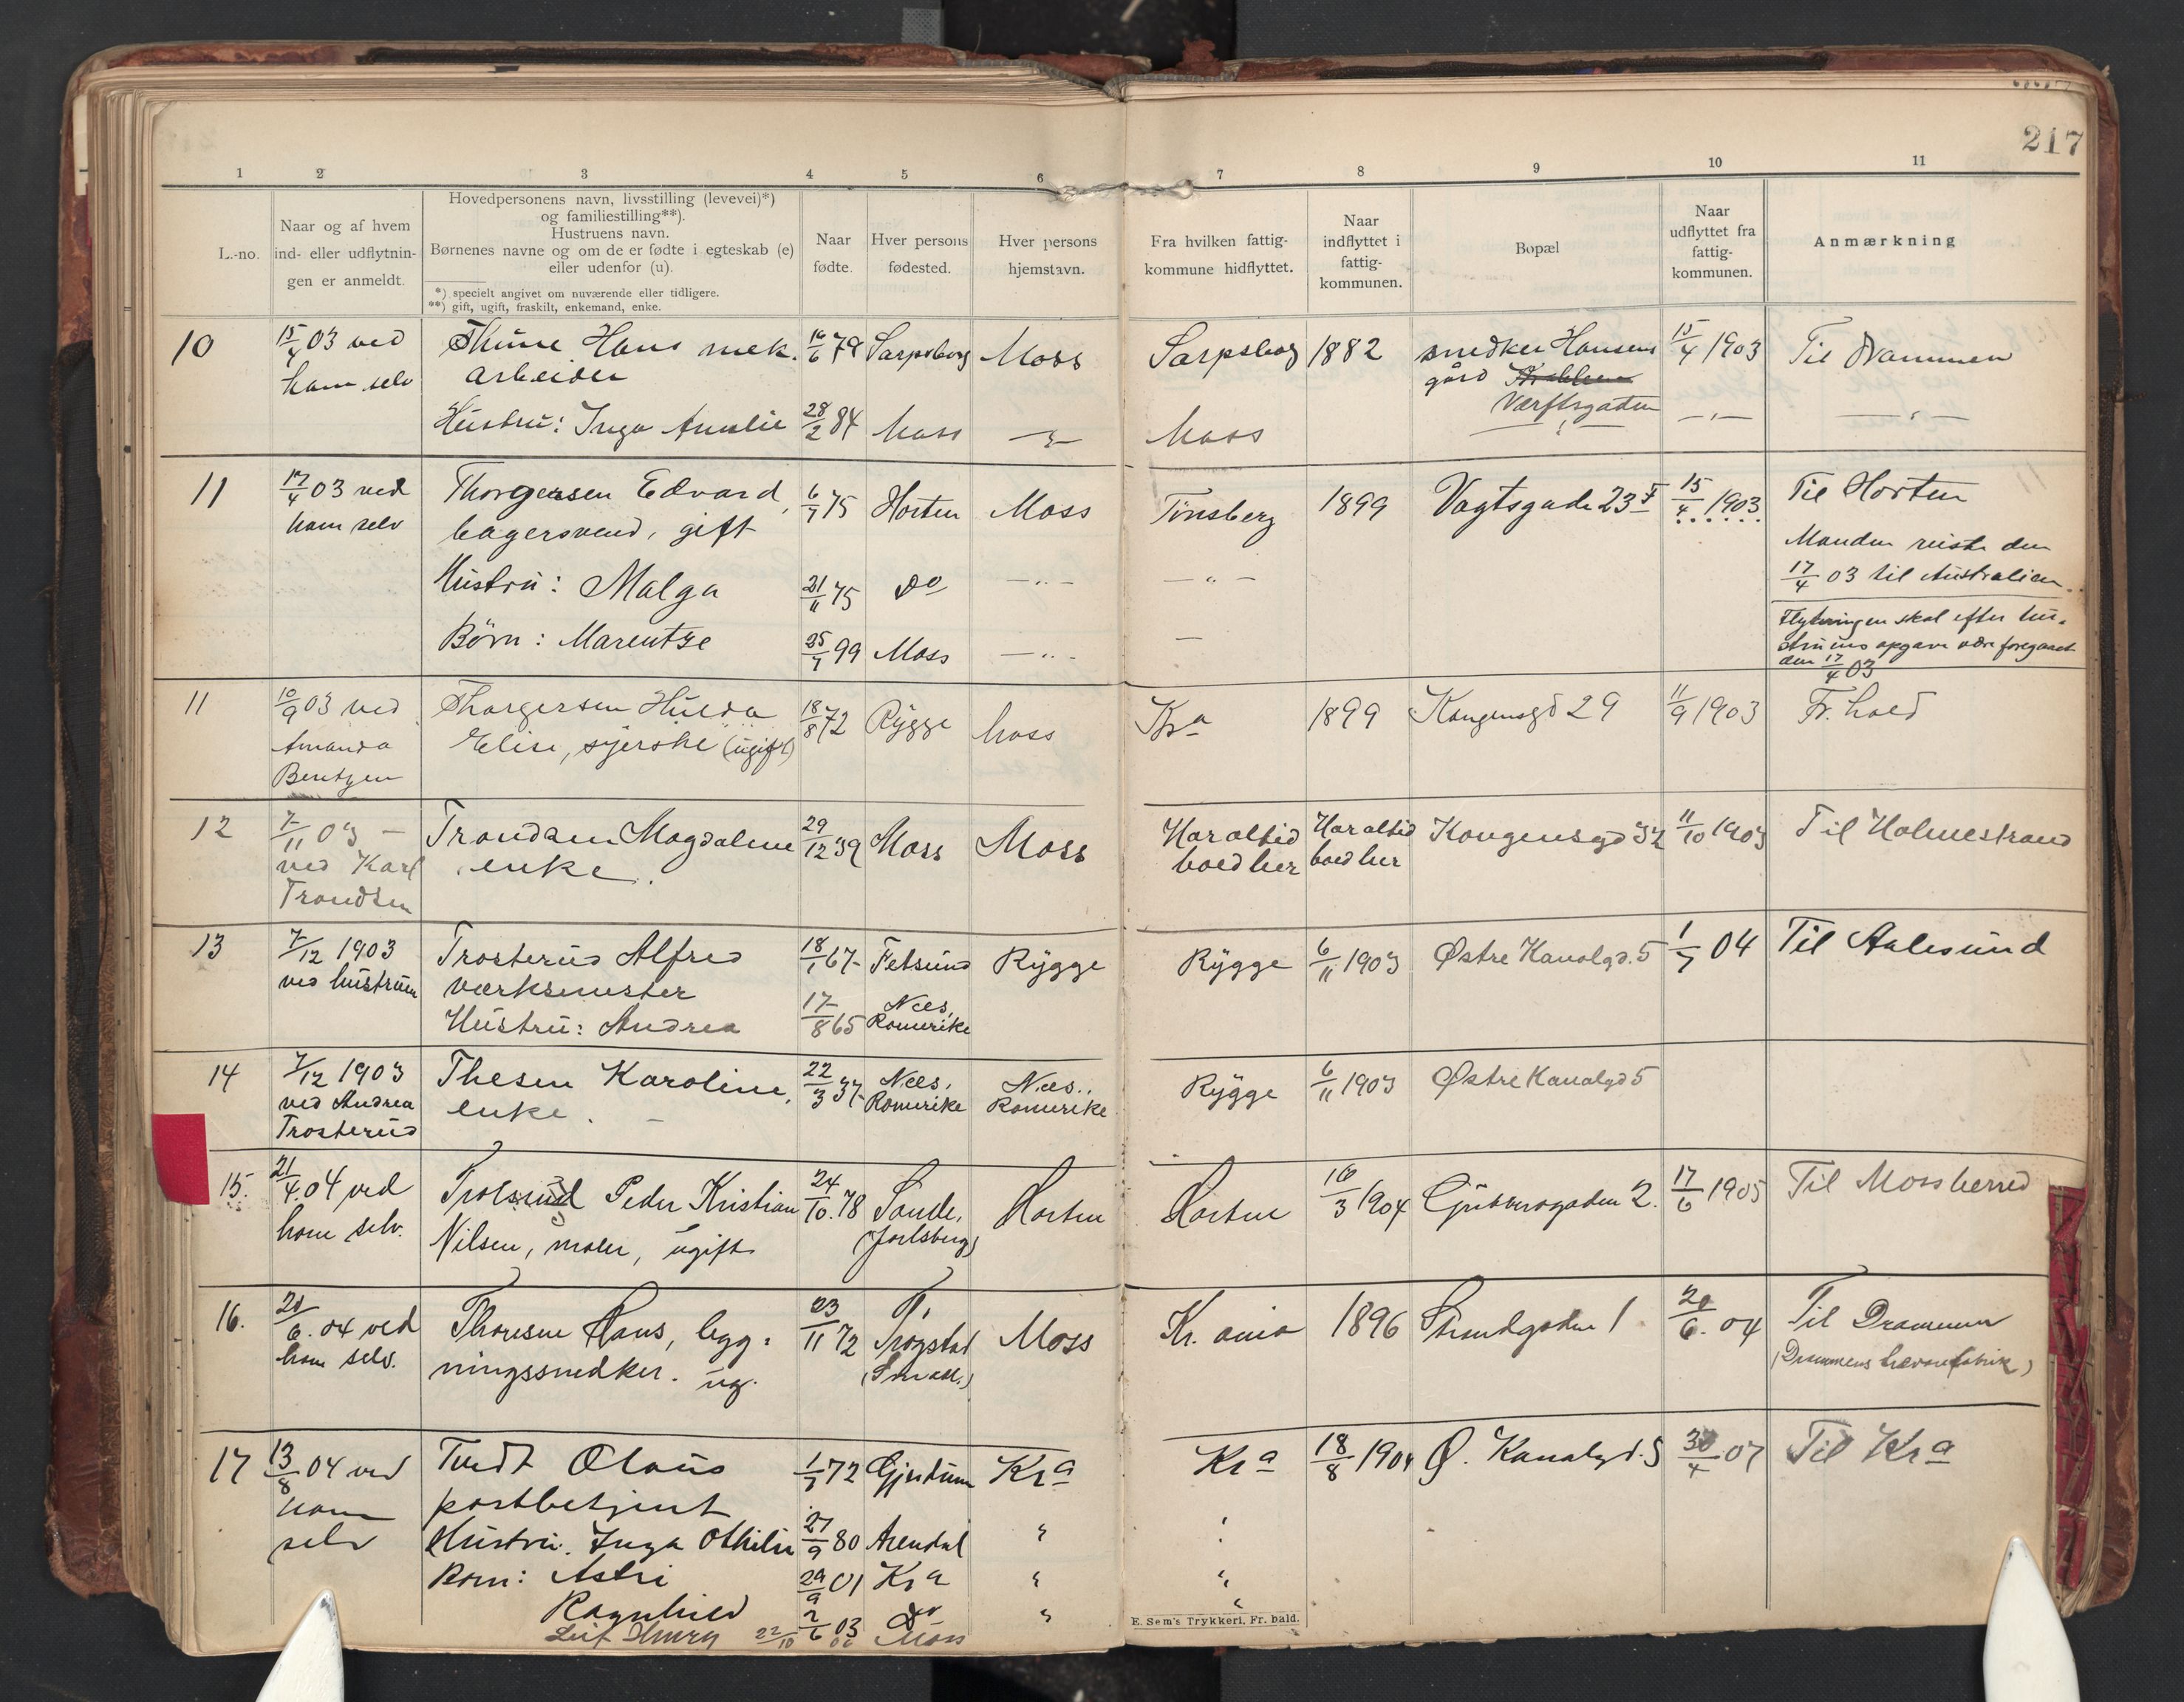 217
1 2 3 4 5 6 7 8 9 10 11
L.-no.
Naar og af hvem
ind- eller udflytnin-
gen er anmeldt.
Hovedpersonens navn, livsstilling (levevei)*)
og familiestilling**).
Hustruens navn.
Børnenes navne og om de er fødte i egteskab (e)
eller udenfor (u).
*) specielt angivet om nuværende eller tidligere.
**) gift, ugift, fraskilt, enkemand, enke.
Naar
fødte.
Hver persons
fødested.
Hver persons
hjemstavn.
Fra hvilken fattig-
kommune hidflyttet.
Naar
indflyttet i
fattig-
kommunen.
Bopæl
Naar
udflyttet fra
fattig-
kommunen.
Anmærkning
10 15/4 03 ved Thune Hans mek. 16/6 79 Sarpsborg Moss Sarpsborg 1882 snedker Hansens 15/4 1903 Til Drammen
ham selv arbeider gård
Værftsgaden
Hustru: Inga Amalie 28/2 84 Moss -"- Moss -"- -"-
11 17/4 03 ved Thorgersen Edvard, 6/7 75 Horten Moss Tønsberg 1899 Vogtsgade 23 F 15/4 1903 Til Horten
ham selv bagersvend, gift
Manden reiste den
17/4 03 til Australien.
Hustru: Malga 21/11 75 Do -"- -"-
Flytningen skal efter hu-
struens opgave være foregaaet
den 17/4 03
Børn: Marentze 25/7 99 Moss -"- —
11 10/9 03 ved Thorgersen Hulda 18/8 72 Rygge Moss Kra 1899 Kongensgd 29 11/9 1903 Fr.hald
Amanda Elise, syerske (ugift)
Bentzen
12 7/11 03 — Trondsen Magdalene 29/12 39 Moss Moss Har altid Har altid Kongensgd 32 11/10 1903 Til Holmestrand
ved Karl enke. boed her boed her
Trondsen
13 7/12 1903 Trosterud Alfred 18/1 67 Fetsund Rygge Rygge 6/11 1903 Østre Kanalgd. 5 1/7 04 Til Aalesund
ved hustruen værksmester
Hustru: Andrea 17/8 65 Næs,
Romerike
14 7/12 1903 Thesen Karoline, 22/3 37 Næs, Næs, Rygge 6/11 1903 Østre Kanalgd 5
ved Andrea enke. Romerike Romerike
Trosterud
15. 21/4 04 ved Trolsrud Peder Kristian 24/10 78 Sande, Horten Horten 16/3 1904 Gudesgaden 2. 17/6 1905 Til Moss herred
ham selv. Nilsen, maler, ugift (Jarlsberg)
16. 20/6 04 ved Thoresen Hans, byg= 23/11 72 Trøgstad Moss Kr.ania 1896 Strandgaden 1 20/6 04 Til Drammen
ham selv. ningssnedker. ug. (Smaal.) (Drammens trævarefabrik)
17 13/8 04 ved Tvedt Olaus 1/7 72 Gjerdrum Kra Kra 18/8 1904 Ø. Kanalgd. 5 30/4 07 Til Kra
ham postbetjent
selv Hustru. Inga Othilie 27/9 80 Arendal "
Børn: Astri 29/9 01 Kra " "
Ragnhild 2/6 03 Do " "
Leif Henry 22/10 06 Moss
E. Sem's Trykkeri, Fr. hald.